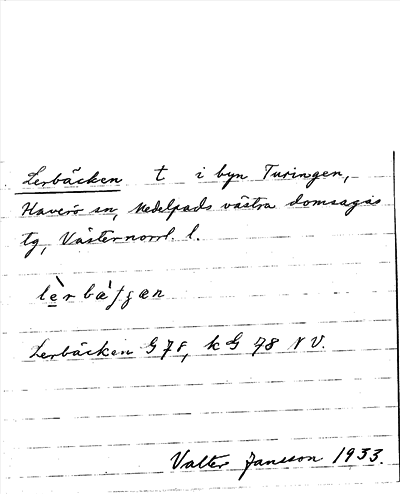 Lerbäcken t i byn Turingen,
Haverö sn, Medelpads västra domsagas
tg, Västernorrl. l.
Lerbäcken G 78, kG 78 NV.
Valter Jansson 1933.